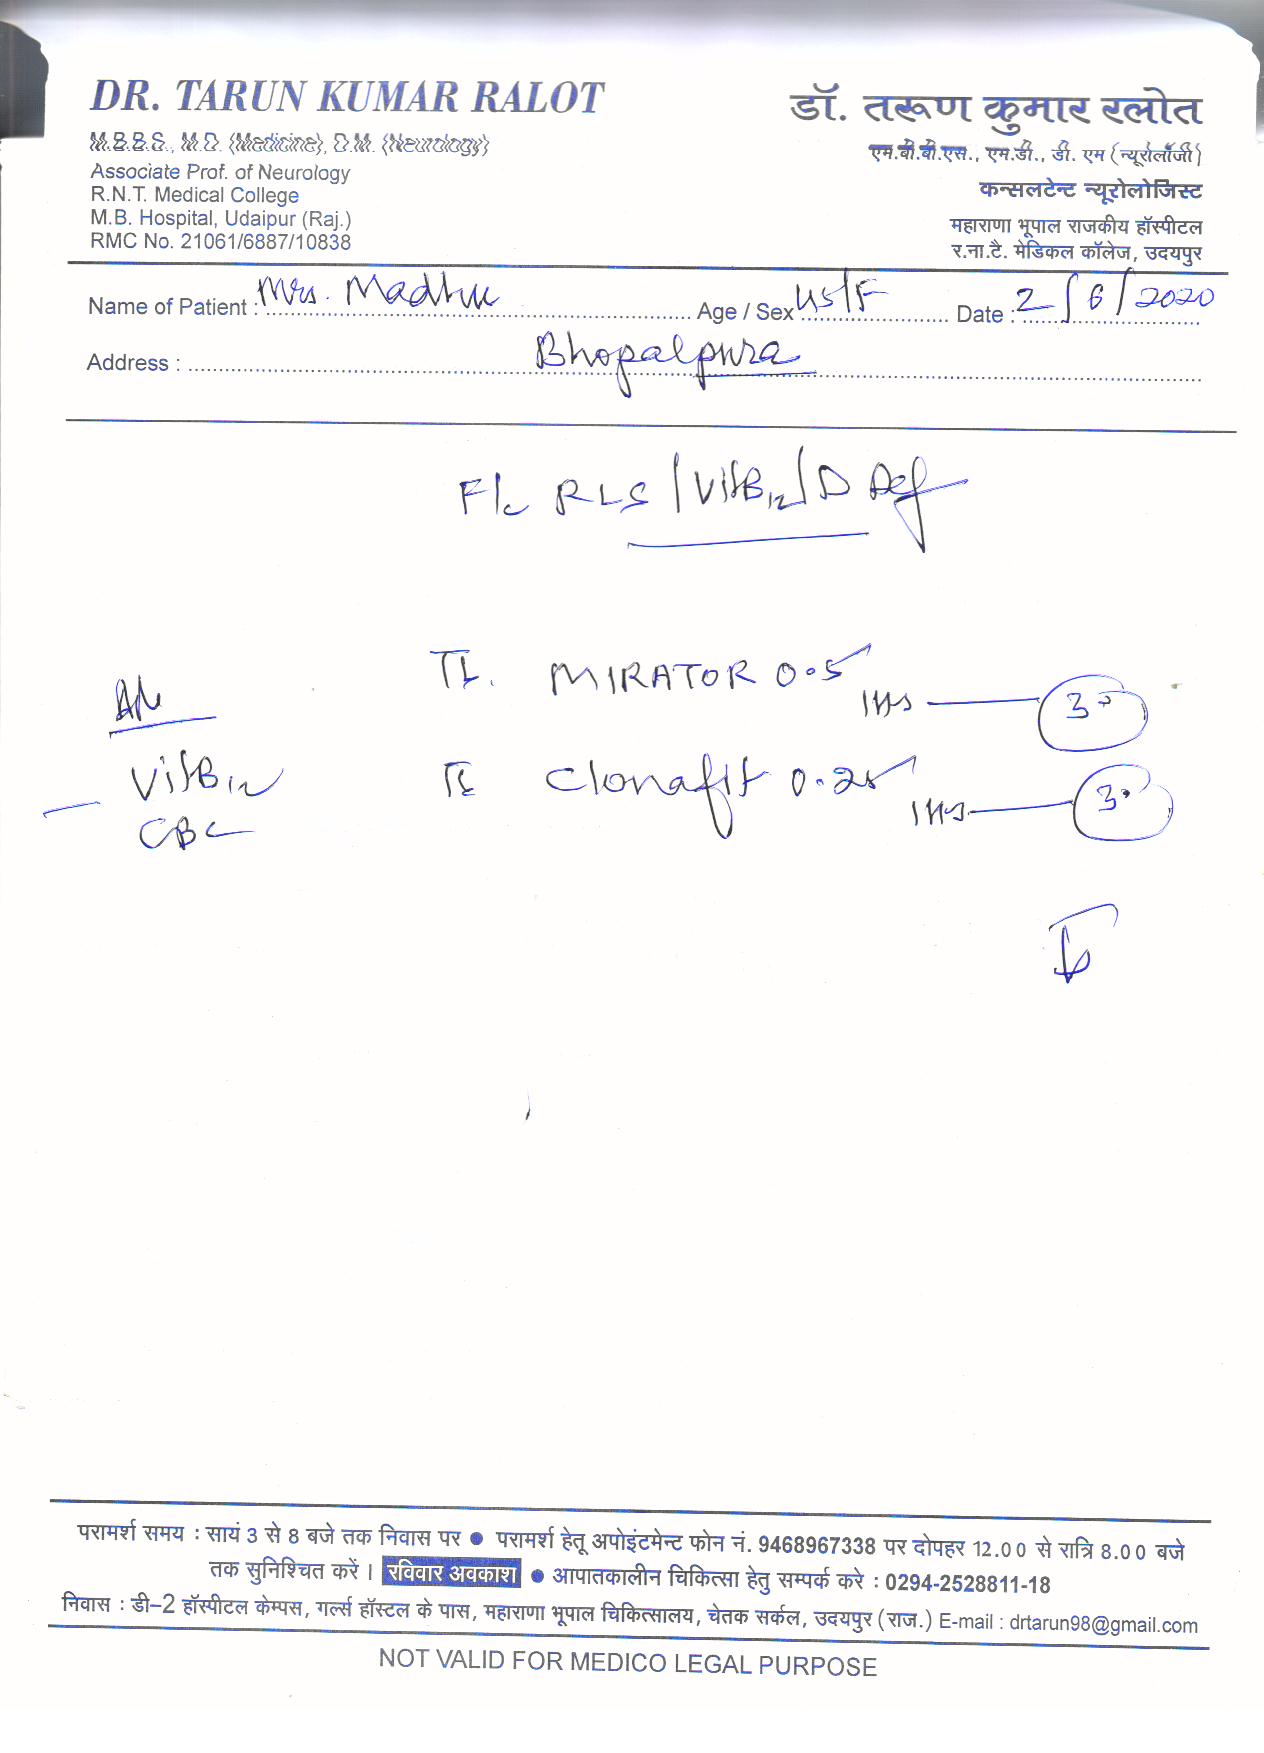 DR. TARUN KUMAR RALOT
M.B.B.S., M.D. (Medicine), D.M. (Neurology)
Associate Prof. of Neurology
R.N.T. Medical College
M.B. Hospital, Udaipur (Raj.)
RMC No. 21061/6887/10838
डॉ. तरूण कुमार रलोत
एम.बी.बी.एस., एम.डी., डी. एम (न्यूरोलॉजी)
कन्सलटेन्ट न्यूरोलोजिस्ट
महाराणा भूपाल राजकीय हॉस्पीटल
र.ना.टै. मेडिकल कॉलेज, उदयपुर
Name of Patient : Mrs. Madhu Age / Sex 45/F Date : 2/6/2020
Address : Bhopalpura
F/c RLS / Vit B12 / D Def
MIRATOR 0.5
1 HS 30
Vit B12
CBC
Clonafit 0.25
1 HS 30
परामर्श समय : सायं 3 से 8 बजे तक निवास पर ● परामर्श हेतू अपोइंटमेन्ट फोन नं. 9468967338 पर दोपहर 12.00 से रात्रि 8.00 बजे
तक सुनिश्चित करें । रविवार अवकाश ● आपातकालीन चिकित्सा हेतु सम्पर्क करे : 0294-2528811-18
निवास : डी–2 हॉस्पीटल केम्पस, गर्ल्स हॉस्टल के पास, महाराणा भूपाल चिकित्सालय, चेतक सर्कल, उदयपुर (राज.) E-mail : drtarun98@gmail.com
NOT VALID FOR MEDICO LEGAL PURPOSE